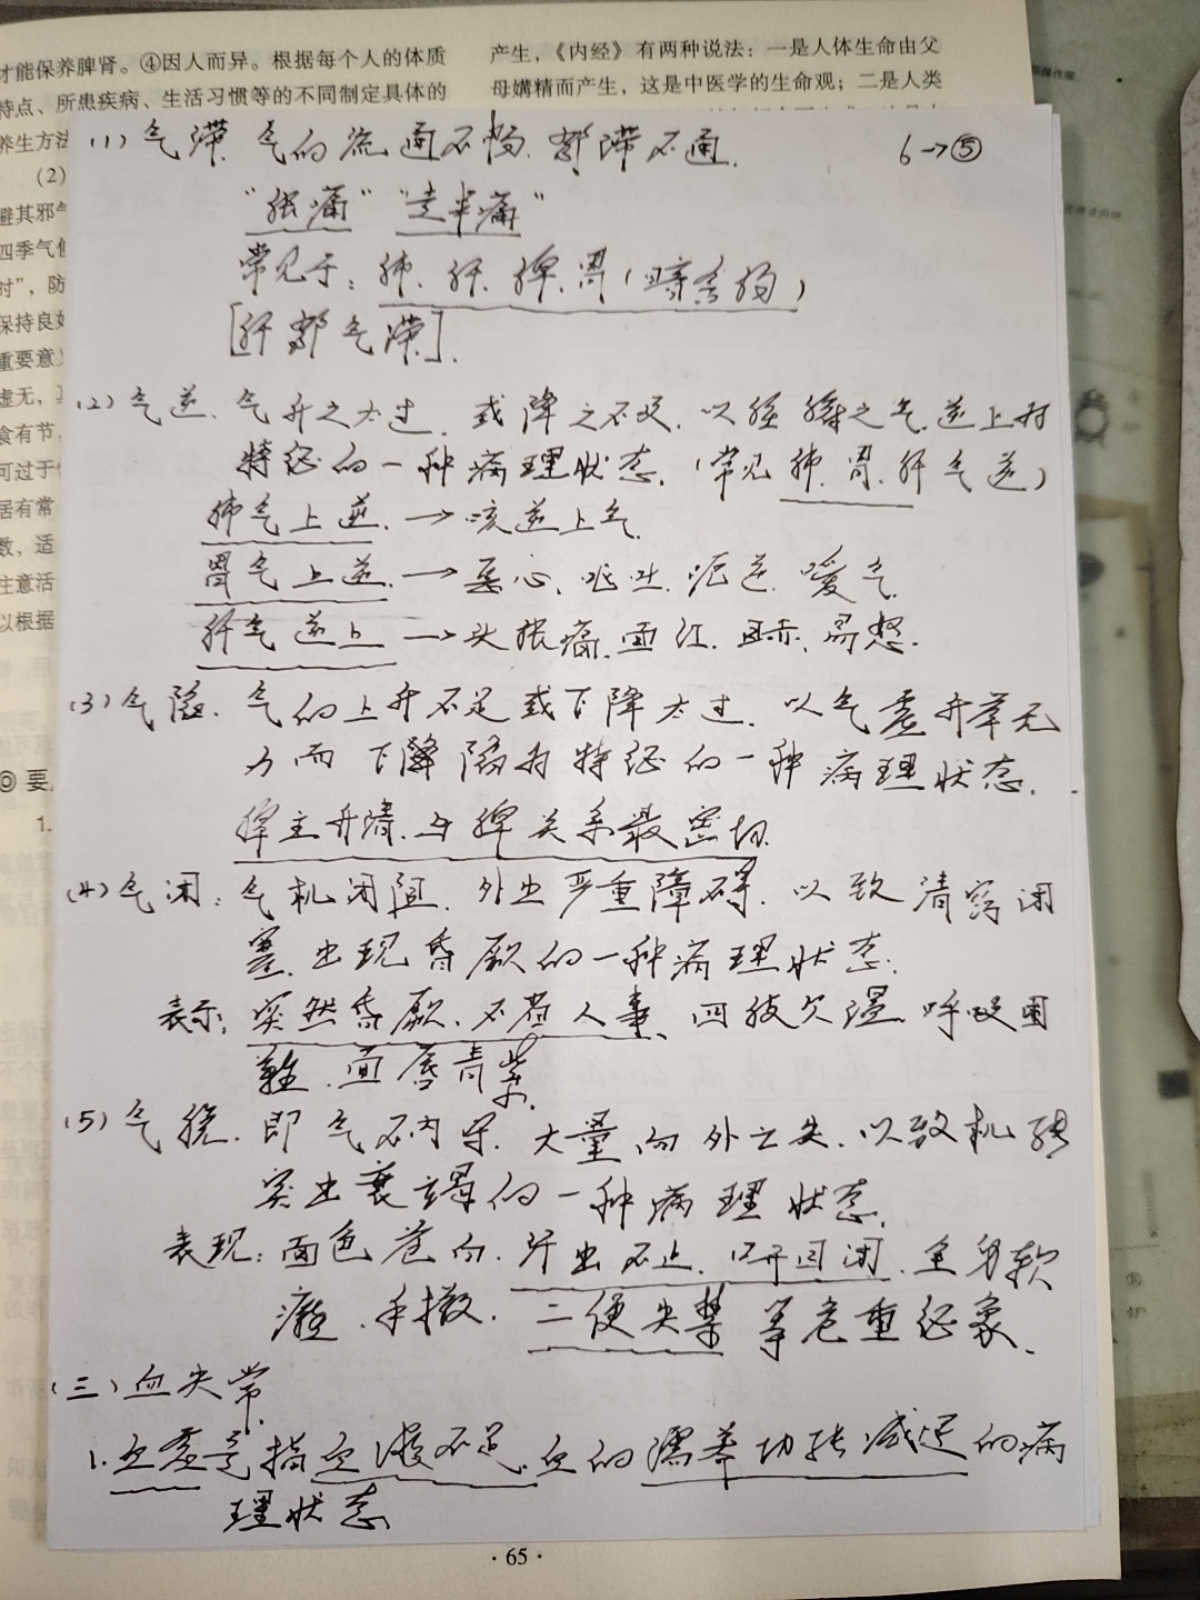 才能保养脾肾。④因人而异。根据每个人的体质
特点、所患疾病、生活习惯等的不同制定具体的
养生方法
(2)
避其邪气
四季气候
时”，防
保持良好
重要意义
虚无，
食有节，
可过于
居有常
数，适
注意活
以根据
◎ 要
1.
产生，《内经》有两种说法：一是人体生命由父
母媾精而产生，这是中医学的生命观；二是人类
6→⑤
(1)气滞.气的流通不畅.郁滞不通.
“胀痛”“走窜痛”
常见于：肺.肝.脾.胃(
[肝郁气滞].
(2)气逆.气升之太过.或降之不及.以脏腑之气逆上为
特征的一种病理状态.(常见肺.胃.肝气逆)
肺气上逆.→咳逆上气.
胃气上逆.→恶心.呕吐.呃逆.嗳气.
肝气逆上→头胀痛.面红.目赤.易怒.
(3)气陷.气的上升不足或下降太过.以气虚升举无
力而下降陷为特征的一种病理状态.
脾主升清.与脾关系最密切.
(4)气闭：气机闭阻.外出严重障碍.以致清窍闭
塞.出现昏厥的一种病理状态.
表示：突然昏厥.不省人事.四肢欠温.呼吸困
难.面唇青紫.
(5)气脱.即气不内守.大量向外亡失.以致机能
突出衰竭的一种病理状态.
表现：面色苍白.汗出不止.口开目闭.全身软
瘫.手撒.二便失禁等危重征象.
(三)血失常.
1.血虚是指血液不足.血的濡养功能减退的病
理状态
·65·